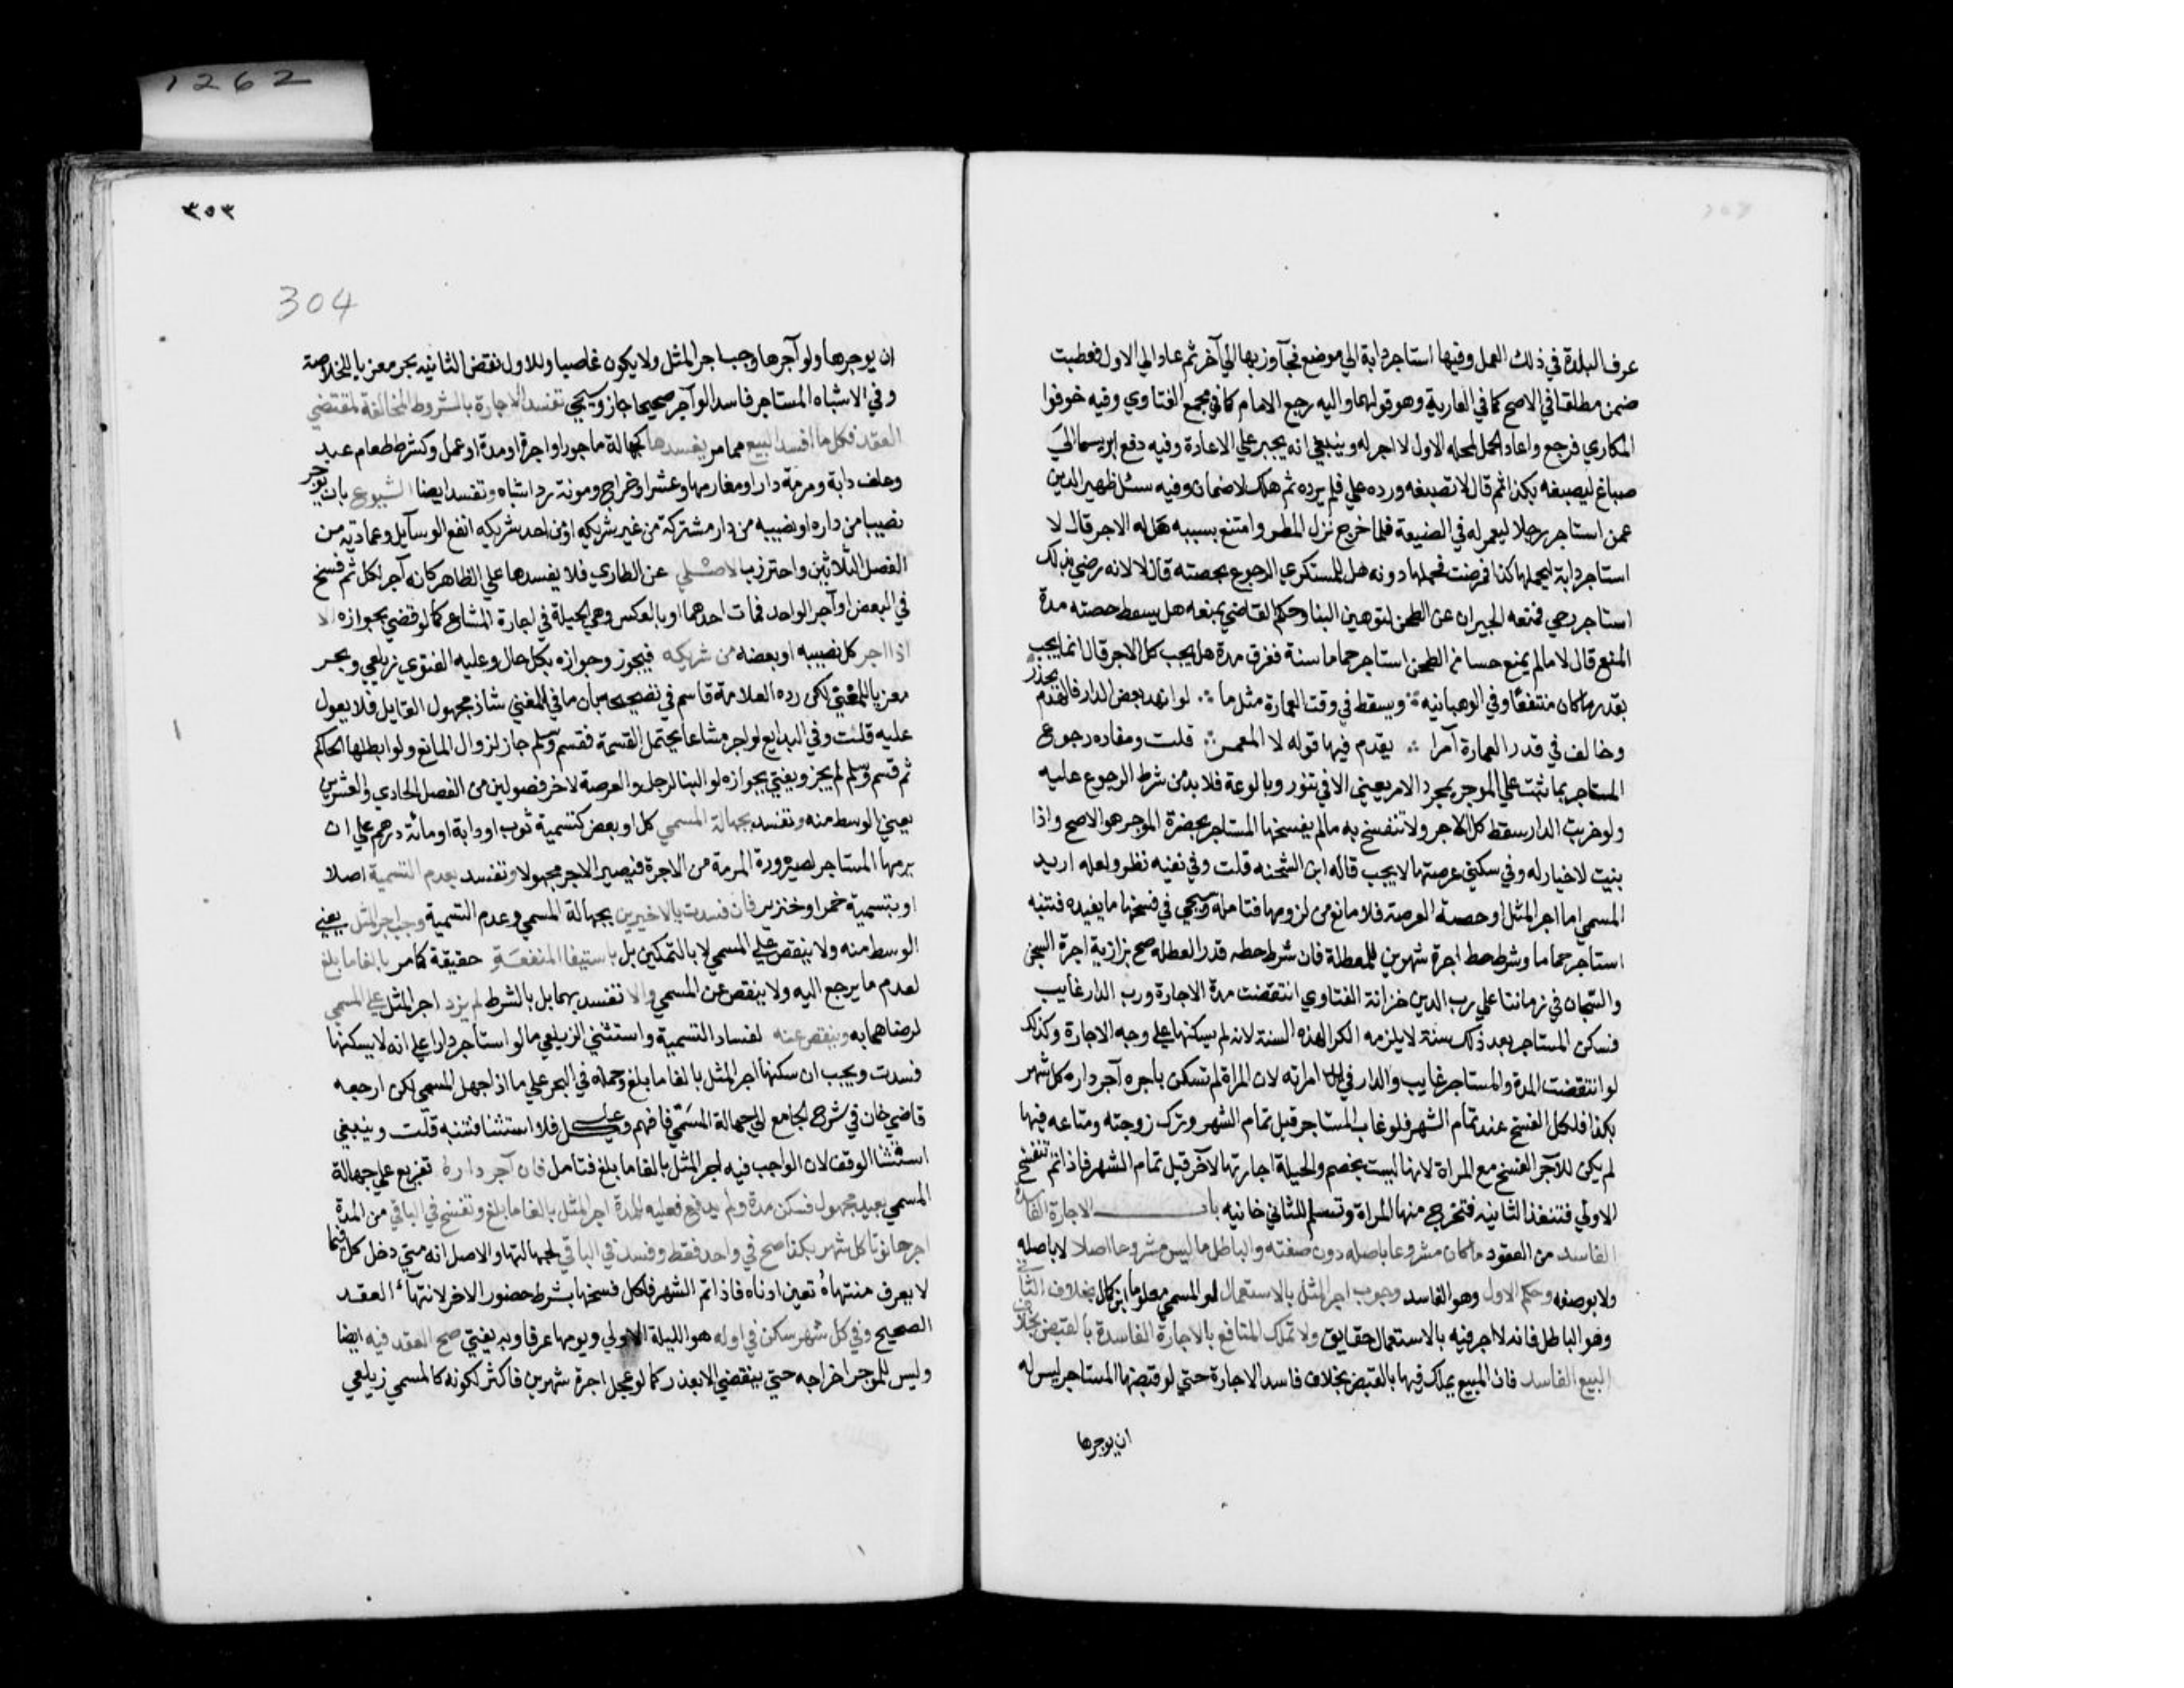 1262
عرف البلدة في ذلك العمل وفيها استاجر دابة الي موضع فجاوز بها الي آخر ثم عاد الي الاول فعطبت
ضمن مطلقا في الاصح كما في العارية وهو قولهما واليه رجع الامام كما في مجمع الفتاوي وفيه خوفوا
المكاري فرجع واعاد الحمل لمحله الاول لا اجر له وينبغي انه يجبر علي الاعادة وفيه دفع ابريسما الي
صباغ ليصبغه بكذا ثم قال لا تصبغه ورده علي فلم يرده ثم هلك لا ضمان وفيه سئل ظهير الدين
عمن استاجر رجلا ليعمر له في الضيعة فلما خرج نزل المطر وامتنع بسببه هل له الاجر قال لا
استاجر دابة ليحملها كذا فمرضت فحملها دونه هل للمستكري الرجوع بحصته قال لا لانه رضي بذلك
استاجر رحي فمنعه الجيران عن الطحن لتوهين البنا وحكم القاضي بمنعه هل يسقط حصته مدة
المنع قال لا مالم يمنع حسا من الطحن استاجر حماما سنة فغرق مدة هل يجب كل الاجر قال انما يجب
بقدر ما كان منتفعا وفي الوهبانيه ويسقط في وقت العمارة مثل ما لو انهد بعض الدار فالهدم يحذر
وخالف في قدر العمارة آمرا يقدم فيها قوله لا المعمر قلت ومفاده رجوع
المستاجر بما ثبت علي الموجر بمجرد الامر يعني الا في تنور وبالوعة فلا بد من شرط الرجوع عليه
ولو خربت الدار سقط كل الاجر ولا تنفسخ به مالم يفسخها المستاجر بحضرة الموجر هو الاصح واذا
بنيت لا خيار له وفي سكني عرصتها لا يجب قاله ابن الشحنه قلت وفي نفيه نظر ولعله اريد
المسمي اما اجر المثل او حصة العرصة فلا مانع من لزومها فتامله وسيجي في فسخها ما يفيده فتنبه
استاجر حماما وشرط حط اجرة شهرين للعطلة فان شرط حطه قدر العطله صح بزازية اجرة السجن
والسجان في زماننا علي رب الدين خزانة الفتاوي انتقضت مدة الاجارة ورب الدار غايب
فسكن المستاجر بعد ذلك سنة لا يلزمه الكرا لهذه السنة لانه لم يسكنها علي وجه الاجارة وكذلك
لو انتقضت المدة والمستاجر غايب والدار في يد امراته لان المراة لم تسكن باجره آجر داره كل شهر
بكذا فلكل الفسخ عند تمام الشهر فلو غاب المستاجر قبل تمام الشهر وترك زوجته ومتاعه فيها
لم يكن للآجر الفسخ مع المراة لانها ليست بخصم والحيلة اجارتها لآخر قبل تمام الشهر فاذا تم تنفسخ
الاولي فتنفذ الثانيه فتخرج منها المراة وتسلم للثاني خانيه باب الاجارة الفاسدة
الفاسد من العقود ما كان مشروعا باصله دون صفته والباطل ما ليس مشروعا اصلا لا باصله
ولا بوصفه وحكم الاول وهو الفاسد وجوب اجر المثل بالاستعمال لو المسمي معلوما ابن كمال بخلاف الثاني
وهو الباطل فانه لا اجر فيه بالاستعمال حقايق ولا تملك المنافع بالاجارة الفاسدة بالقبض بخلاف
البيع الفاسد فان المبيع يملك فيها بالقبض بخلاف فاسد الاجارة حتي لو قبضها المستاجر ليس له
ان يوجرها
٣٥٣
304
ان يوجرها ولو آجرها وجب اجر المثل ولا يكون غاصبا وللاول نقض الثانيه بحر معزيا للخلاصة
وفي الاشباه المستاجر فاسدا لو آجر صحيحا جاز وسيجي تفسد الاجارة بالشروط المخالفة لمقتضي
العقد فكل ما افسد البيع مما مر يفسدها كجهالة ماجور او اجرة او مدة او عمل وكشرط طعام عبد
وعلف دابة ومرمة دار او مغارمها وعشر او خراج ومونة رد اشباه وتفسد ايضا الشيوع بان يوجر
نصيبا من داره او نصيبه من دار مشتركة من غير شريكه او من احد شريكه انفع الوسايل وعمادية من
الفصل الثلاثين واحترز بالاصلي عن الطاري فلا يفسدها علي الظاهر كانه آجر الكل ثم فسخ
في البعض او آجر الواحد فمات احدهما او بالعكس وهي الحيلة في اجارة المشاع كما لو قضي بجوازه الا
اذا اجر كل نصيبه او بعضه من شريكه فيجوز وجوازه بكل حال وعليه الفتوي زيلعي وبحر
معزيا للمغني لكن رده العلامة قاسم في تصحيحه بان ما في المغني شاذ مجهول القايل فلا يعول
عليه قلت وفي البدايع لو اجر مشاعا يحتمل القسمة فقسم وسلم جاز لزوال المانع ولو ابطلها الحاكم
ثم قسم وسلم لم يجز ويفتي بجوازه لو البنا لرجل والعرصة لاخر فصولين من الفصل الحادي والعشرين
يعني الوسط منه وتفسد بجهالة المسمي كل او بعض كتسمية ثوب او دابة او مائة درهم علي ان
يرمها المستاجر لصيرورة المرمة من الاجرة فيصير الاجر مجهولا وتفسد بعدم التسمية اصلا
او بتسمية خمر او خنزير فان فسدت بالاخيرين بجهالة المسمي وعدم التسمية وجب اجر المثل يعني
الوسط منه ولا ينقص علي المسمي لا بالتمكين بل باستيفا المنفعة حقيقة كما مر بالغا ما بلغ
لعدم ما يرجع اليه ولا ينقص عن المسمي والا تفسد بهما بل بالشرط لم يزد اجر المثل علي المسمي
لرضاهما به وينقص عنه لفساد التسمية واستثني الزيلعي ما لو استاجر دارا علي انه لا يسكنها
فسدت ويجب ان سكنها اجر المثل بالغا ما بلغ وحمله في البحر علي ما اذا جهل المسمي لكن ارجعه
قاضي خان في شرح الجامع الي جهالة المسمي فافهم وعليه فلا استثنا فتنبه قلت وينبغي
استثنا الوقف لان الواجب فيه اجر المثل بالغا ما بلغ فتامل فان آجر داره تفريع علي جهالة
المسمي بعبد مجهول فسكن مدة ولم يدفع فعليه للمدة اجر المثل بالغا ما بلغ وتفسخ في الباقي من المدة
اجر حانوتا كل شهر بكذا صح في واحد فقط وفسد في الباقي لجهالتها والاصل انه متي دخل كل فيما
لا يعرف منتهاه تعين ادناه فاذا تم الشهر فلكل فسخها بشرط حضور الاخر لانتهاء العقد
الصحيح وفي كل شهر سكن في اوله هو الليلة الاولي ويومها عرفا وبه يفتي صح العقد فيه ايضا
وليس للموجر اخراجه حتي ينقضي الا بعذر كما لو عجل اجرة شهرين فاكثر لكونه كالمسمي زيلعي